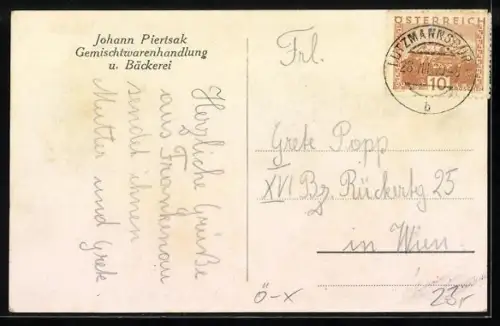 Johann Piertsak
Gemischtwarenhandlung
u. Bäckerei
Herzliche Grüße
aus Frankenau
sendet ihnen
Mutter und Grete.
ÖSTERREICH
10
LUTZMANNSBURG
b
Frl.
Grete Popp
XVI Bz. Rückertg 25
in Wien
Ö-X
23,-